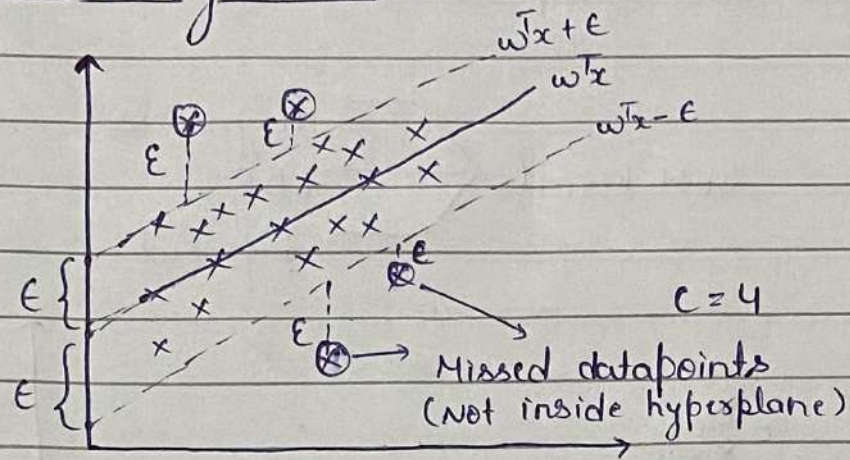 wᵀx + ϵ
wᵀx
wᵀx - ϵ
ξ
ξ
ϵ
ϵ
ξ
ξ
C = 4
Missed datapoints
(Not inside hyperplane)